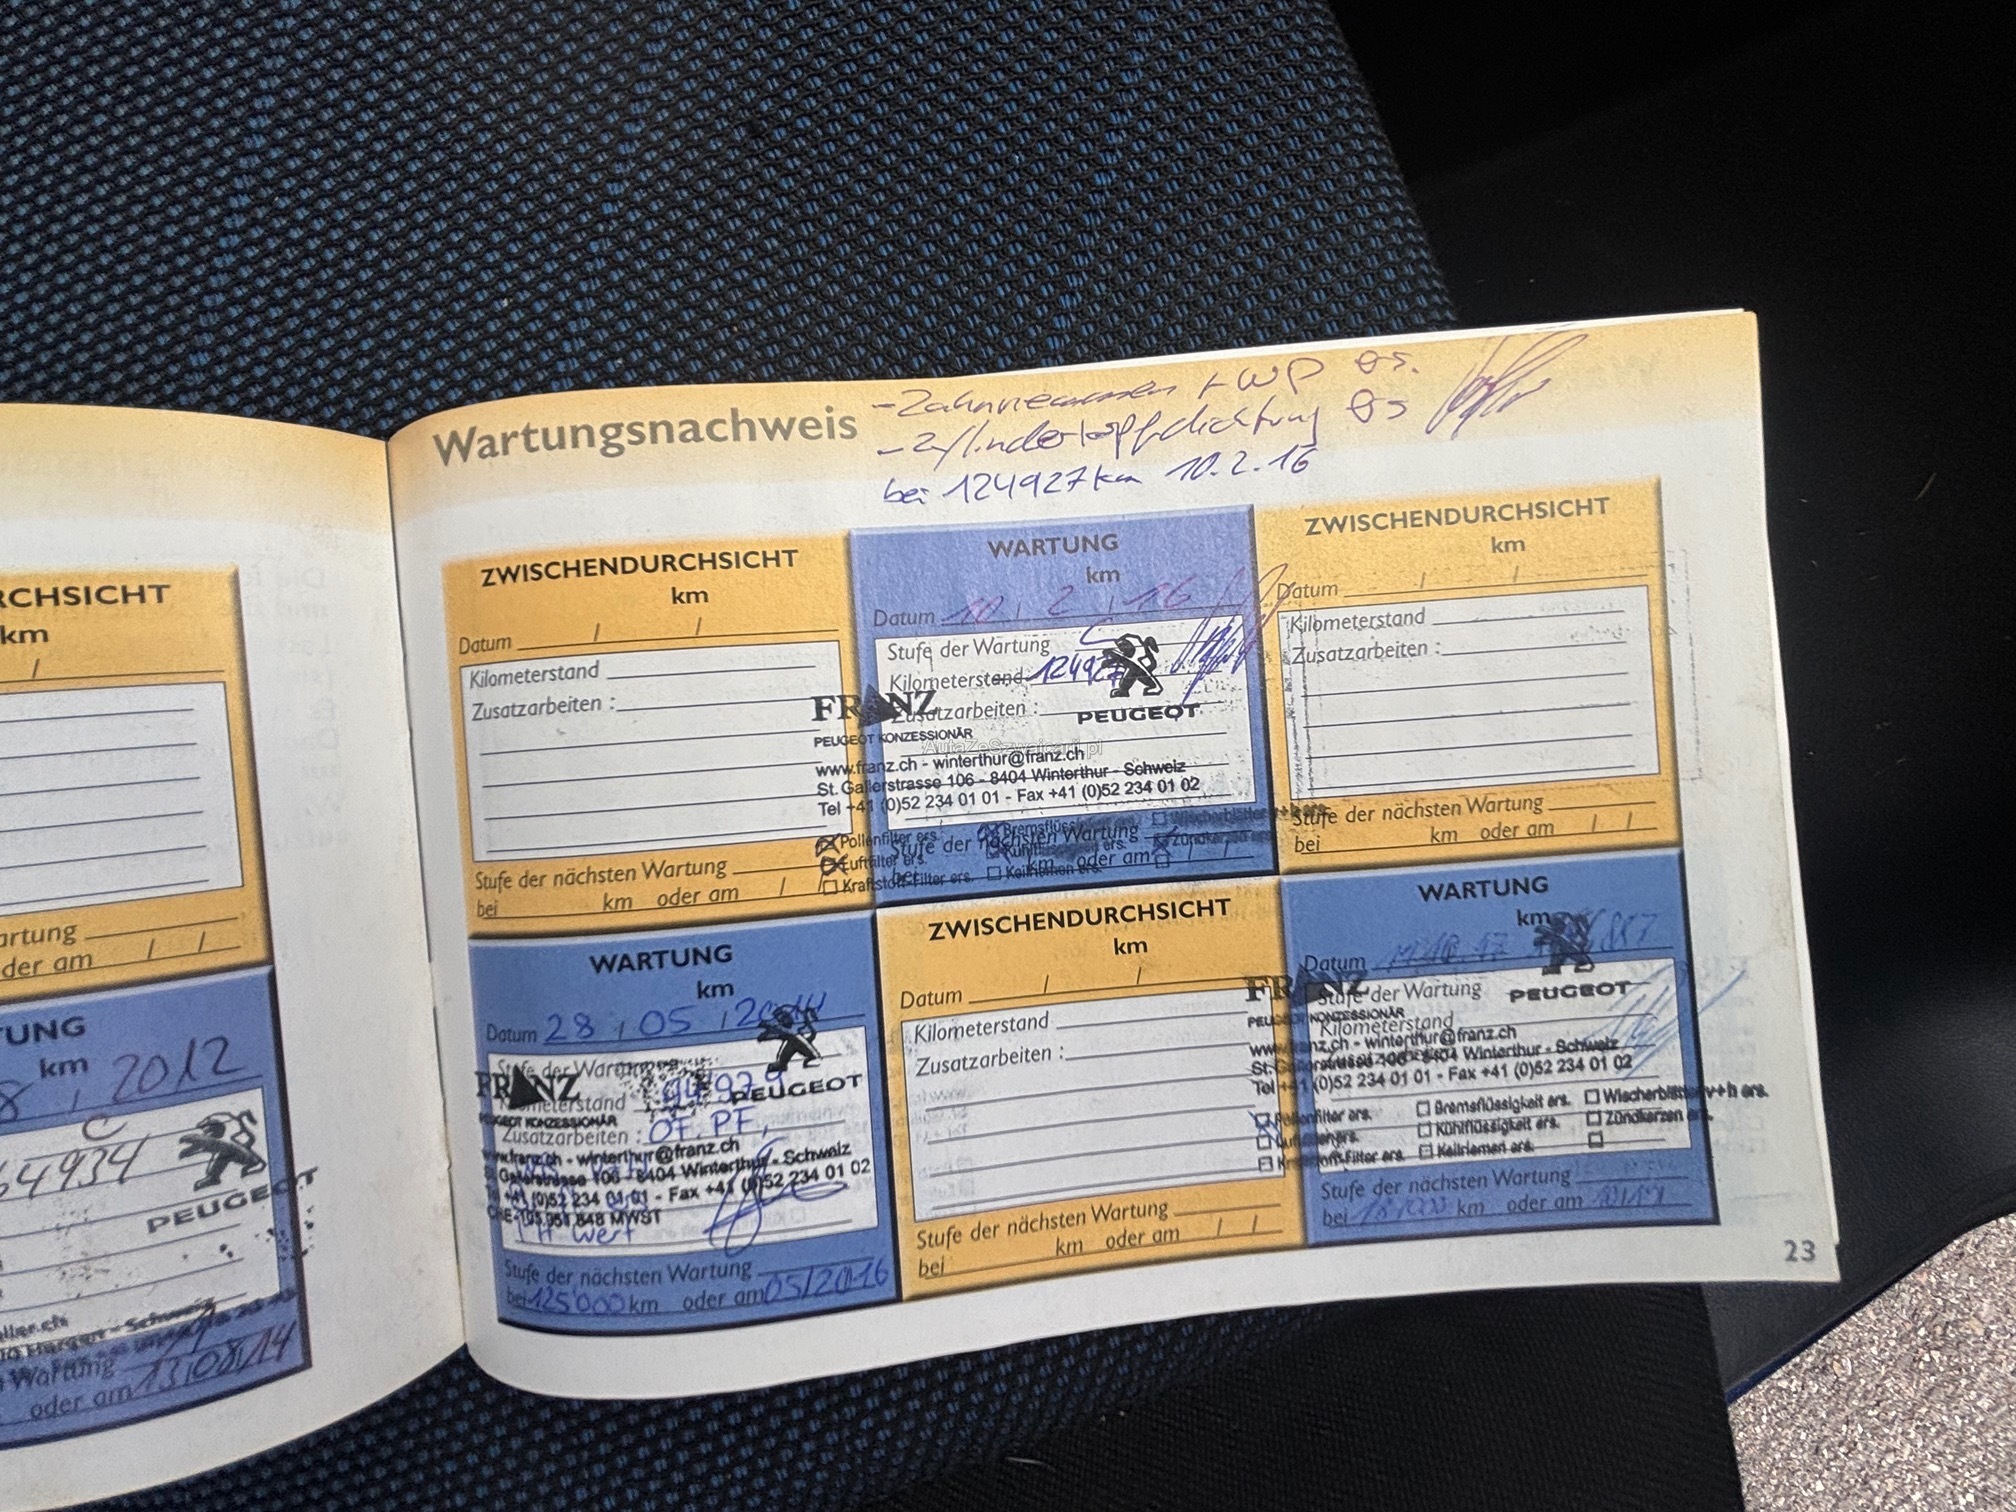 RCHSICHT
km
artung
der am
TUNG
km
8 , 2012
C
64934
PEUGEOT
Wartung
oder am 13/08/14
Wartungsnachweis
- Zahnriemen + WP ers.
- Zylinderkopfdichtung ers
bei 124927 km 10.2.16
ZWISCHENDURCHSICHT
km
Datum / /
Kilometerstand
Zusatzarbeiten :
Stufe der nächsten Wartung
bei km oder am / /
WARTUNG
km
Datum 10 , 2 , 16
Stufe der Wartung C
Kilometerstand 124927
Zusatzarbeiten :
FRANZ
PEUGEOT
PEUGEOT KONZESSIONÄR
AutaZeSzwajcarii.pl
www.franz.ch - winterthur@franz.ch
St. Gallerstrasse 106 - 8404 Winterthur - Schweiz
Tel +41 (0)52 234 01 01 - Fax +41 (0)52 234 01 02
Pollenfilter ers. Bremsflüssigkeit ers. Wischerblätter v+h ers.
Luftfilter ers. Kühlflüssigkeit ers. Zündkerzen ers.
Kraftstoff-Filter ers. Keilriemen ers.
Stufe der nächsten Wartung
bei km oder am / /
ZWISCHENDURCHSICHT
km
Datum / /
Kilometerstand
Zusatzarbeiten :
Stufe der nächsten Wartung
bei km oder am / /
WARTUNG
km
Datum 28 , 05 , 2014
Stufe der Wartung
Kilometerstand 94979
Zusatzarbeiten : OF, PF,
FRANZ
PEUGEOT
PEUGEOT KONZESSIONÄR
www.franz.ch - winterthur@franz.ch
St. Gallerstrasse 106 - 8404 Winterthur - Schweiz
Tel +41 (0)52 234 01 01 - Fax +41 (0)52 234 01 02
MWST
Stufe der nächsten Wartung
bei 125'000 km oder am 05/2016
ZWISCHENDURCHSICHT
km
Datum / /
Kilometerstand
Zusatzarbeiten :
Stufe der nächsten Wartung
bei km oder am / /
WARTUNG
km
Datum
Stufe der Wartung
Kilometerstand
FRANZ
PEUGEOT
PEUGEOT KONZESSIONÄR
www.franz.ch - winterthur@franz.ch
St. Gallerstrasse 106 - 8404 Winterthur - Schweiz
Tel +41 (0)52 234 01 01 - Fax +41 (0)52 234 01 02
Pollenfilter ers. Bremsflüssigkeit ers. Wischerblätter v+h ers.
Luftfilter ers. Kühlflüssigkeit ers. Zündkerzen ers.
Kraftstoff-Filter ers. Keilriemen ers.
Stufe der nächsten Wartung
bei km oder am
23